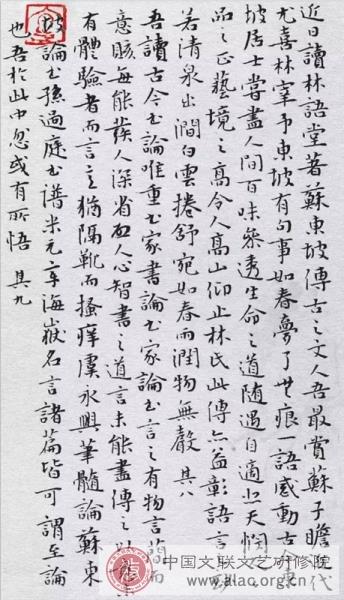 近日讀林語堂著蘇東坡傳古之文人吾最賞蘇子瞻代
尤喜林宰予東坡有句事如春夢了無痕一語感動古今東
坡居士嘗盡人間百味參透生命之道隨遇自適悲天憫
品之正藝境之高令人高山仰止林氏此傳亦益彰語言
若清泉出澗白雲捲舒宛如春雨潤物無聲 其八
吾讀古今書論唯重書家書論書家論書言之有物言簡而
意賅每能發人深省啟人心智書之道言未能盡傳之以
有體驗者而言之猶隔靴而搔癢虞永興筆髓論蘇東
坡論書孫過庭書譜米元章海嶽名言諸篇皆可謂至論
也吾於此中忽或有所悟 其九
中国文联文艺研修院